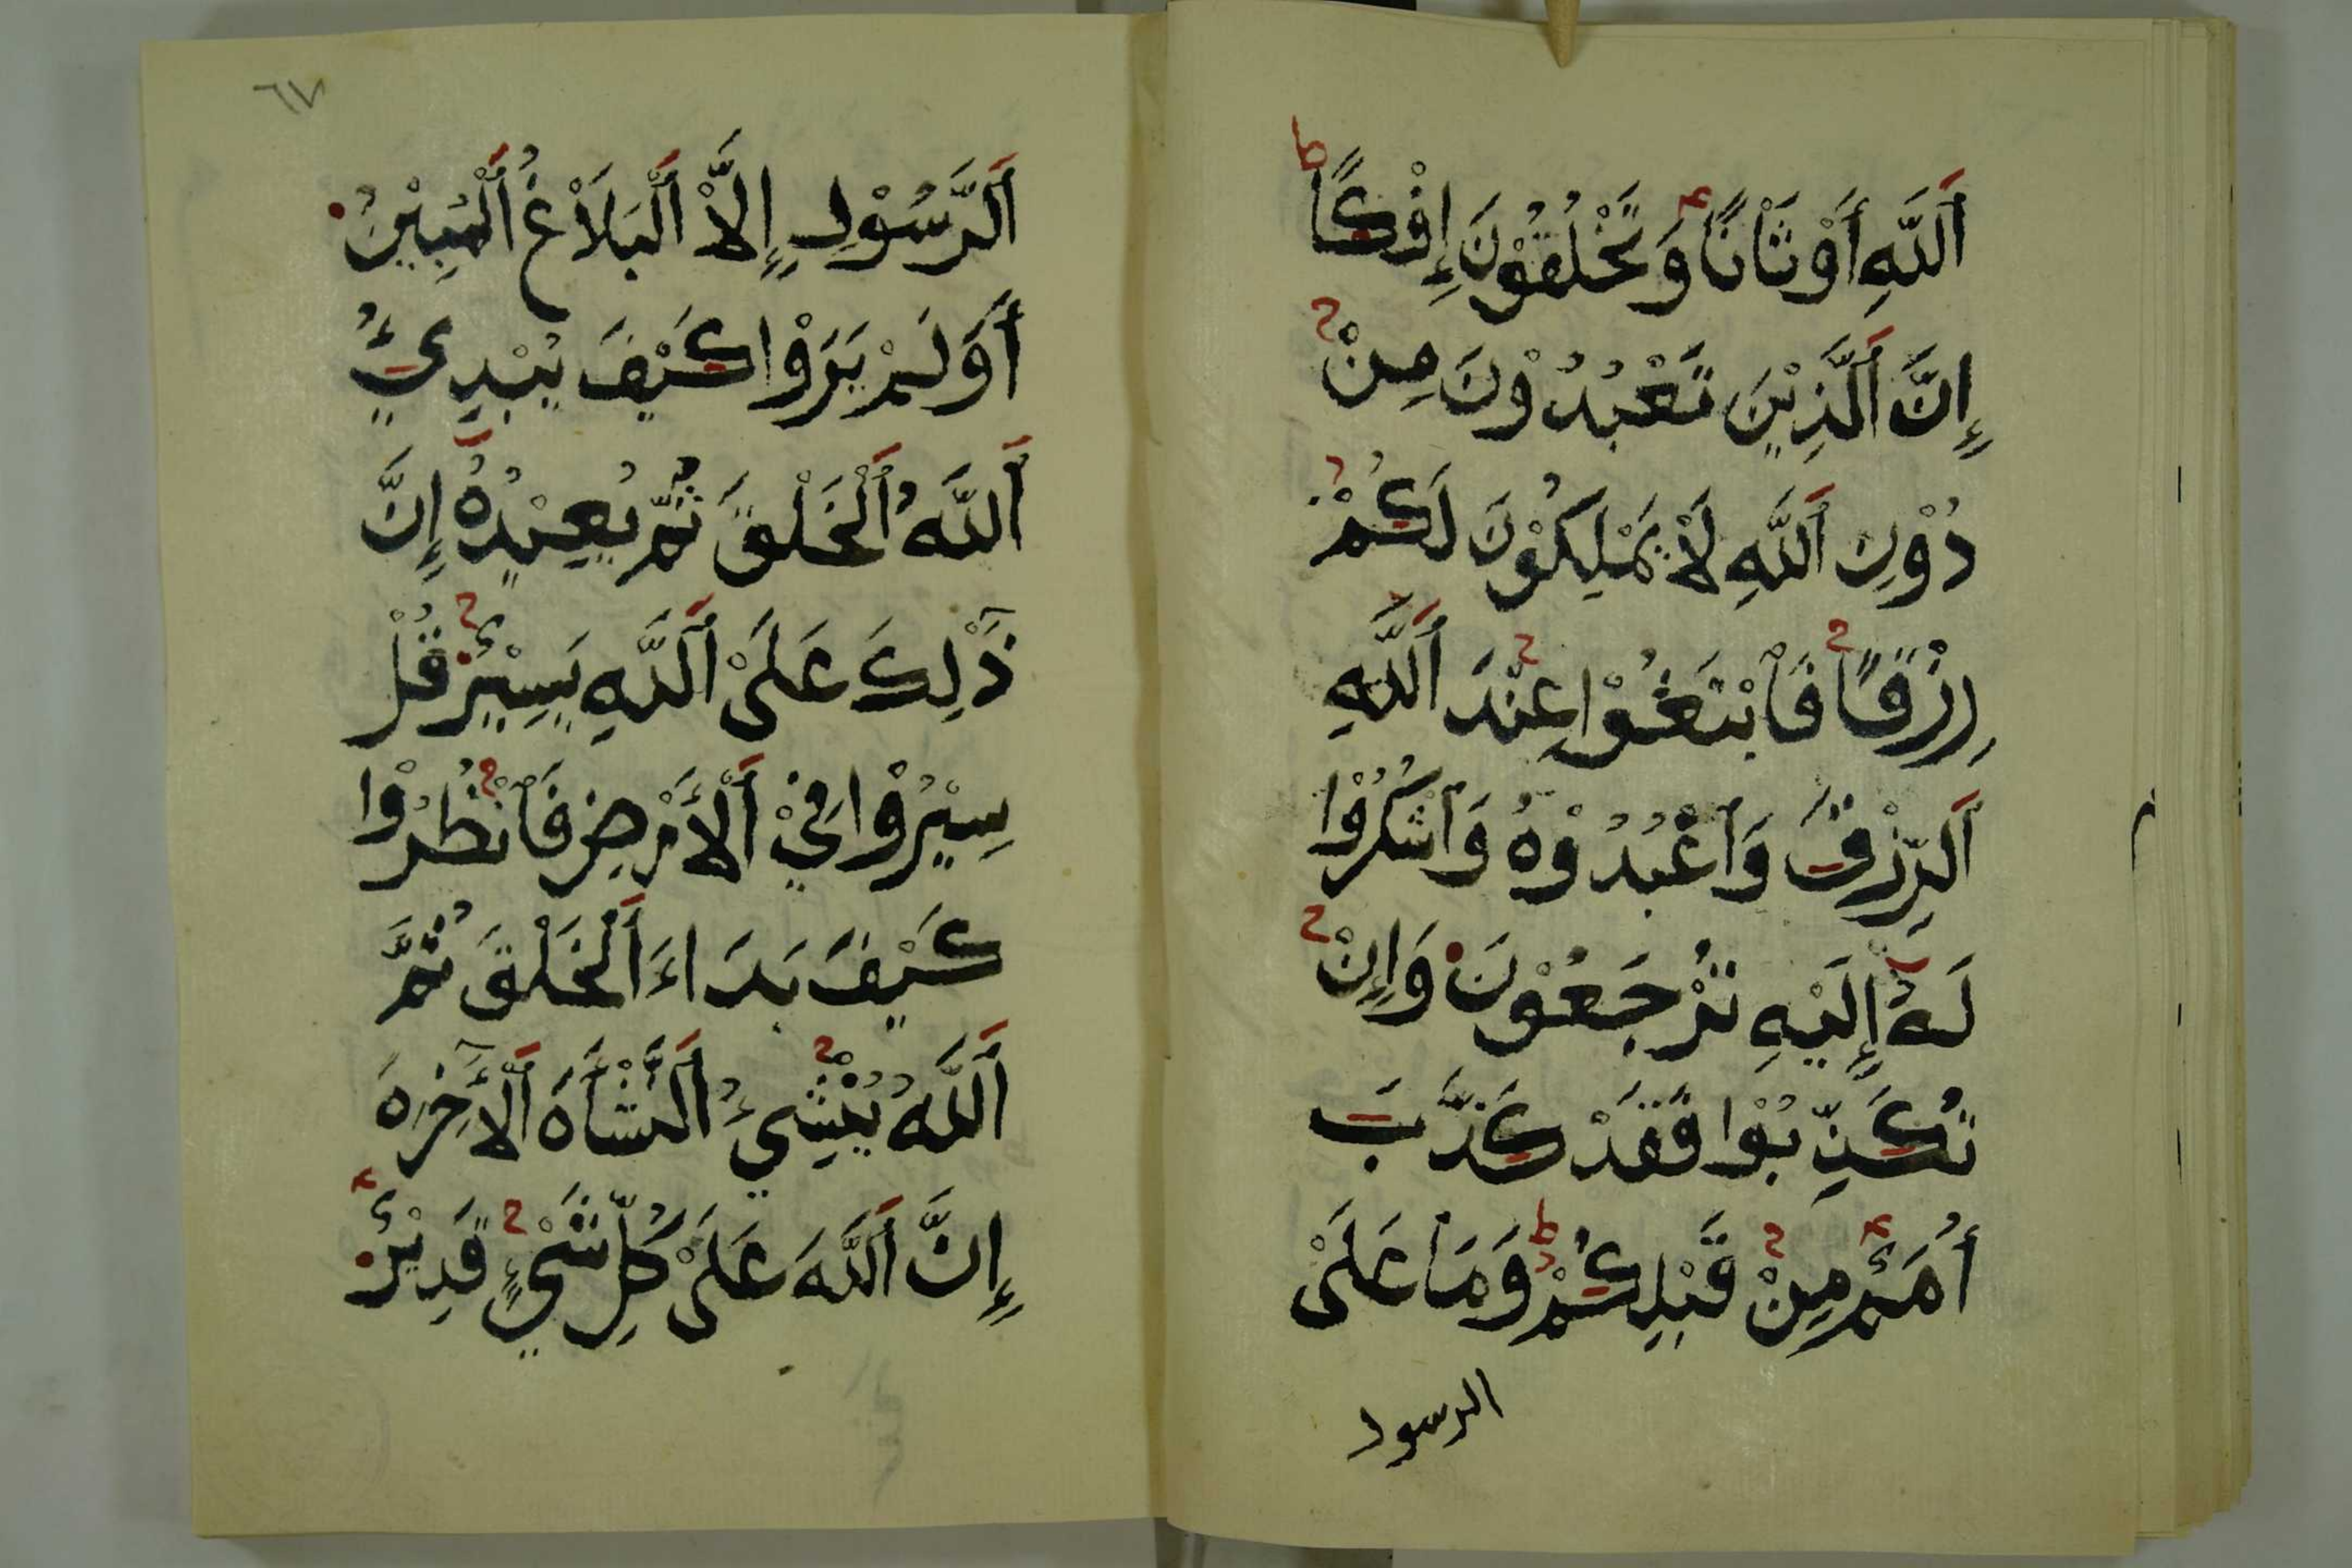 اَللَّهِ أَوْثَانًا وَتَخْلُقُوْنَ إِفْكًا ط
إِنَّ اَلَّذِيْنَ تَعْبُدُوْنَ مِنْ
دُوْنِ اَللَّهِ لَاْ يَمْلِكُوْنَ لَكُمْ
رِزْقًا فَاْبْتَغُوْا عِنْدَ اَللَّهِ
اَلرِّزْقَ وَاْعْبُدُوْهُ وَاْشْكُرُوْا
لَهُ إِلَيْهِ تُرْجَعُوْنَ وَإِنْ
تُكَذِّبُوْا فَقَدْ كَذَّبَ
أُمَمٌ مِنْ قَبْلِكُمْ ط وَمَاْ عَلَىْ
الرسول
٦٧
اَلرَّسُوْلِ إِلَّاْ اَلْبَلَاْغُ اَلْمُبِيْنُ
أَوَلَمْ يَرَوْا كَيْفَ يُبْدِئُ
اَللَّهُ اَلْخَلْقَ ثُمَّ يُعِيْدُهُ إِنَّ
ذَٰلِكَ عَلَىْ اَللَّهِ يَسِيْرٌ قُلْ
سِيْرُوْا فِيْ اَلْأَرْضِ فَاْنْظُرُوْا
كَيْفَ بَدَاءَ اَلْخَلْقَ ثُمَّ
اَللَّهُ يُنْشِئُ اَلنَّشْأَهَ اَلْأَٓخِرَهَ
إِنَّ اَللَّهَ عَلَىْ كُلِّ شَيْءٍ قَدِيْرٌ